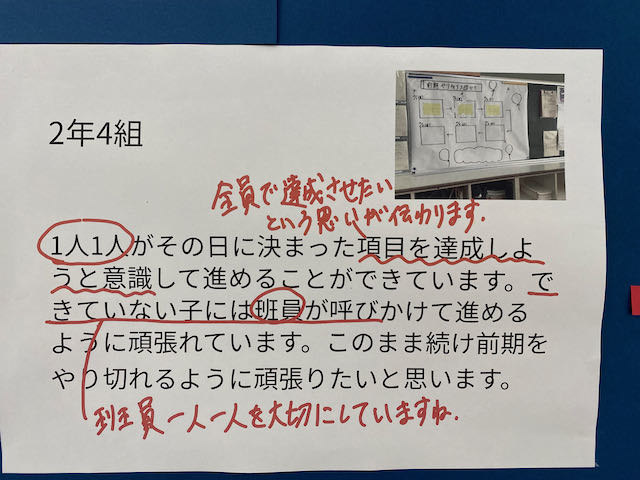 2年4組
全員で達成させたい
という思いが伝わります.
1人1人がその日に決まった項目を達成しよ
うと意識して進めることができています。で
きていない子には班員が呼びかけて進める
ように頑張れています。このまま続け前期を
やり切れるように頑張りたいと思います。
班員一人一人を大切にしていますね.